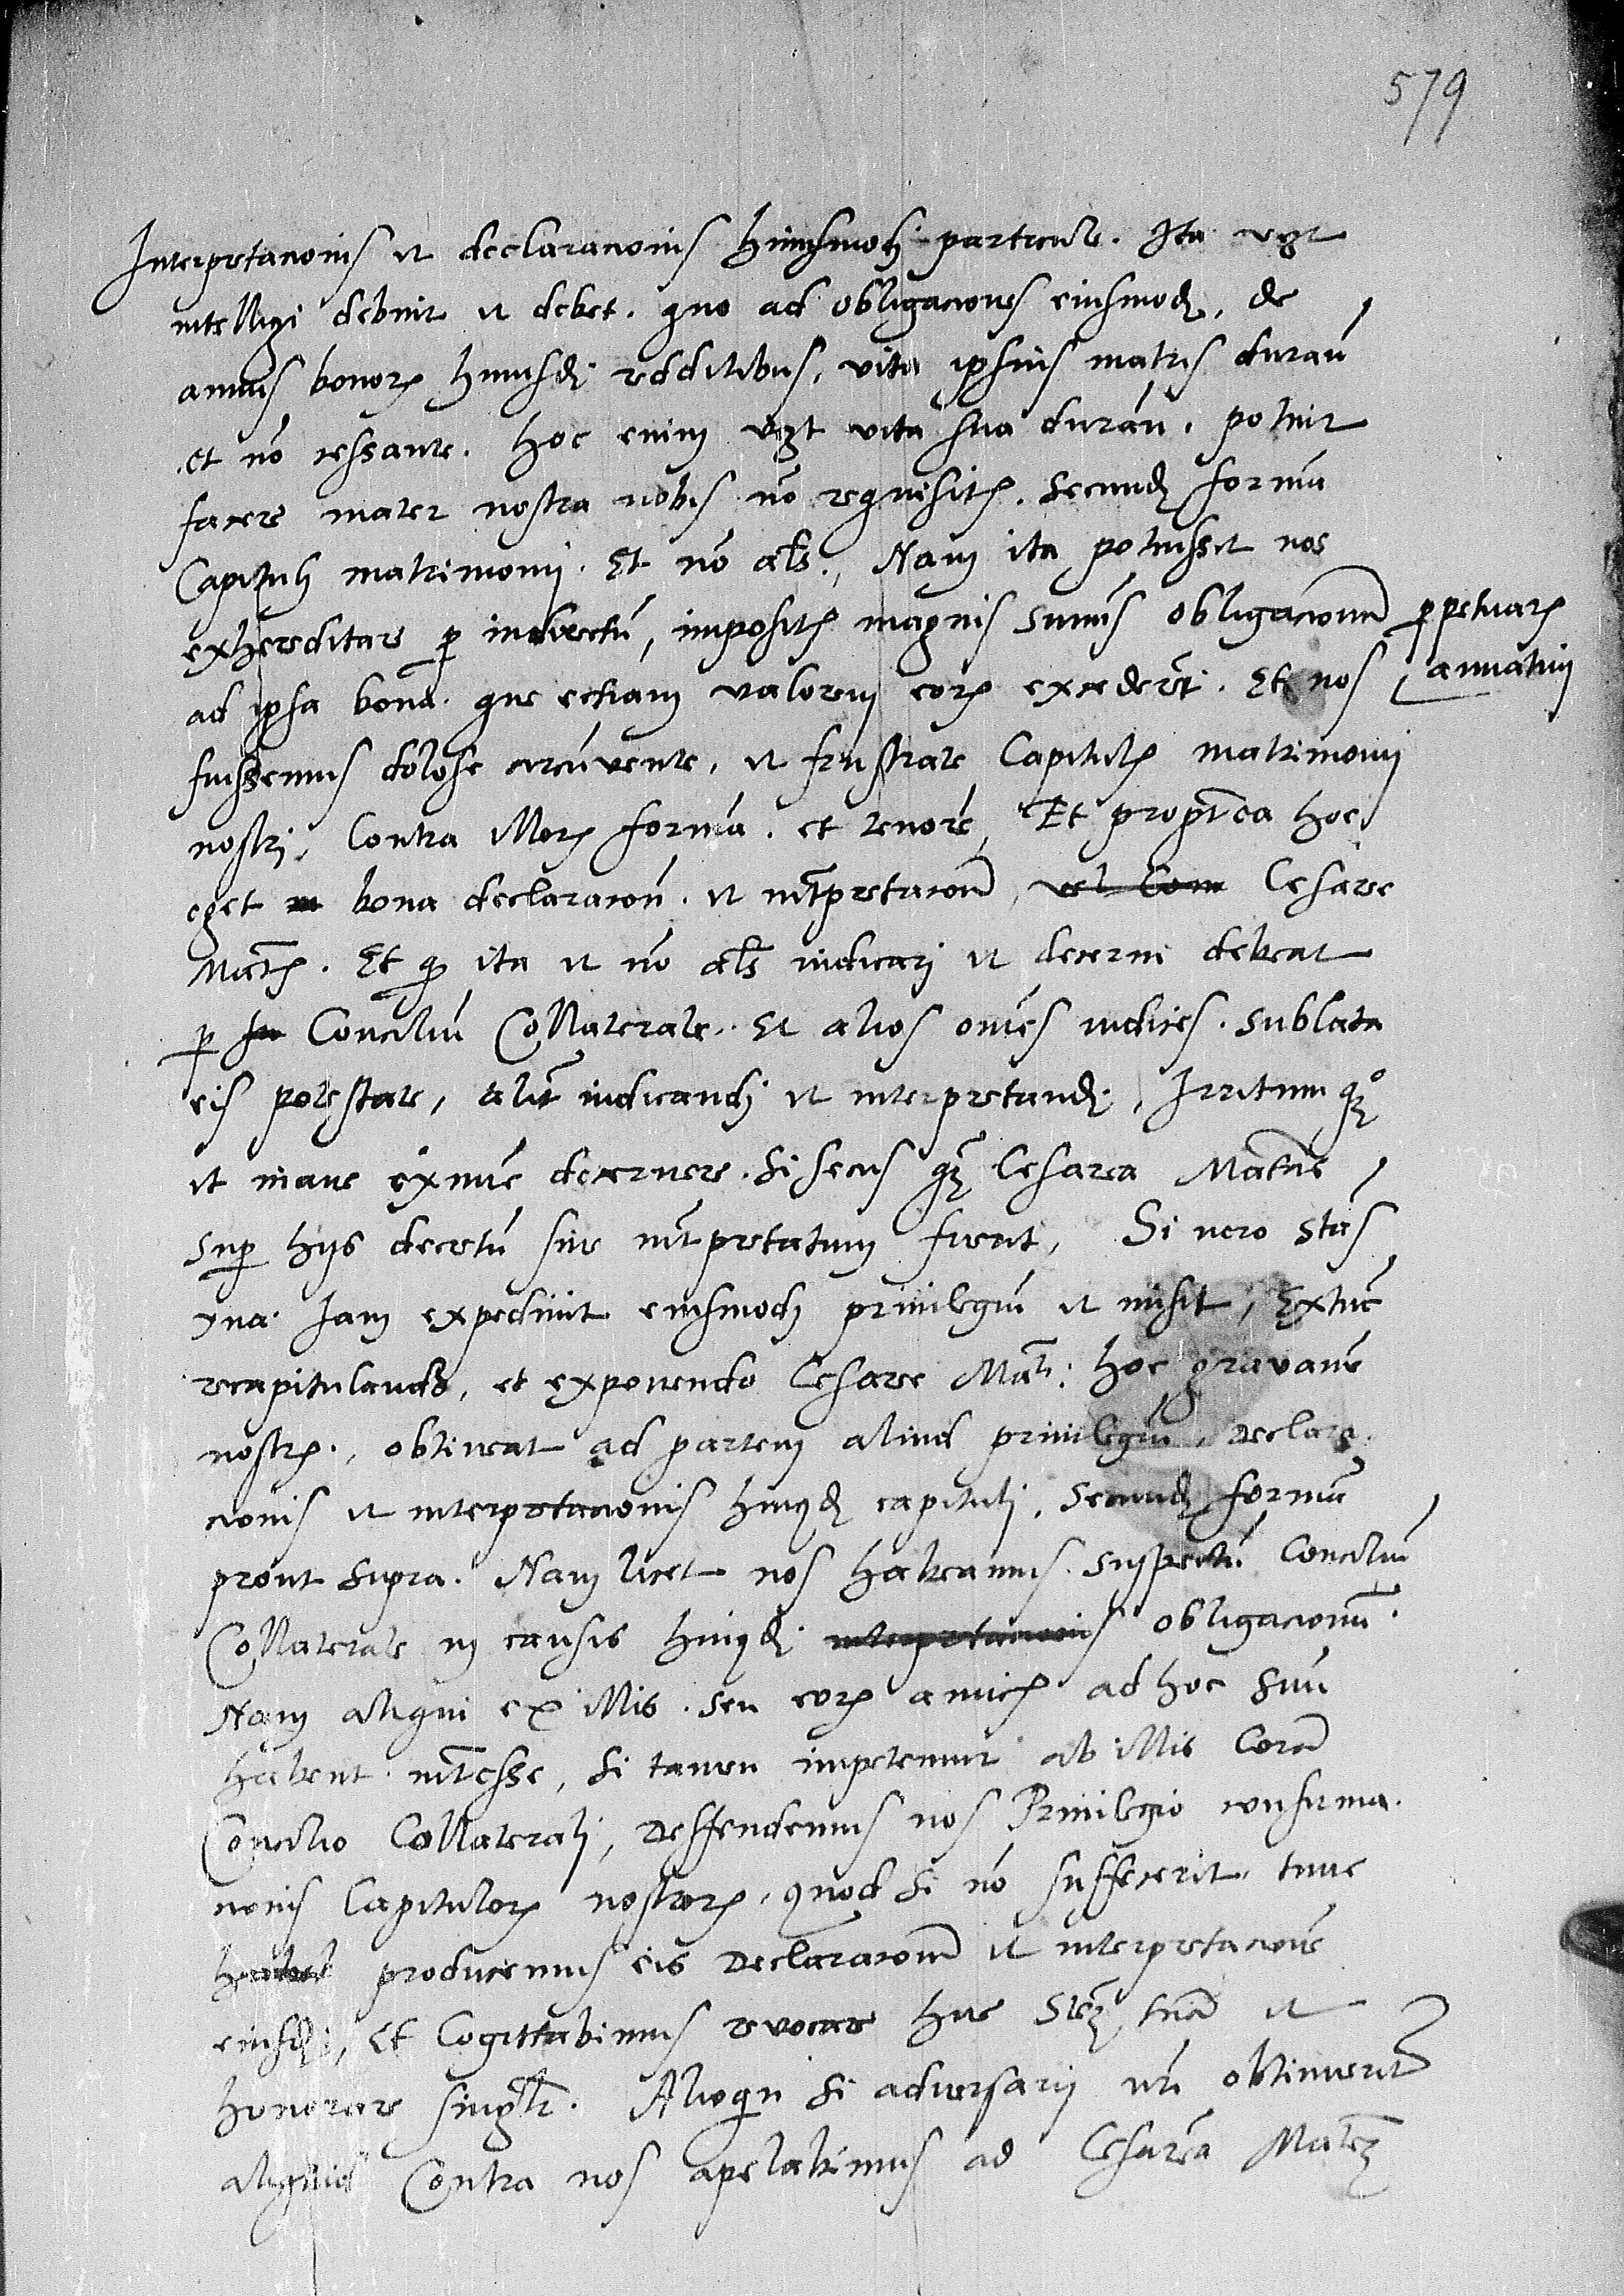 579
Interpretacionis et declaracionis huiusmodi particule. Ita videlicet
intelligi debuit et debet. quo ad obligaciones eiusmodi, de
annuis bonorum huiusmodi redditibus, vita ipsius matris duran
et nō cessante. Hoc enim videlicet vita sua duran. potuit
facere mater nostra nobis nō requisitis. Secundum formā
Capituli matrimonij. Et nō als., Nam ita potuisset nos
exhereditare per indirectū, impositis magnis sumis obligacionum perpetuarum
ad ipsa bona. que eciam valorem eorum excederēt. Et nos annuatim
fuissemus dolose circūvente, et frustrate Capitulis matrimonij
nostri, Contra illorum formā. et tenorē, Et propterea hoc
eget bona declaracion. et interpretacion, vel Com Cesaree
Mtis. Et quod ita et nō als iudicari et decerni debeat
per Conciliū Collaterale. Et alios omēs iudices. sublata
eis potestate, alit iudicandi et interpretandi, Irritum
et inane exnunc decernere. Si secus Cesarea Mtate
super hijs decretū sive interpretatum fuerit, Si vero Stas
vra Iam expedivit eiusmodi privilegiū et misit, Extunc
recapitulando, et exponendo Cesaree Mti: hoc gravamē
nostrum., obtineat ad partem aliud privilegiū, Declara
cionis et interpretacionis huiusmodi capituli, Secundum formā
prout supra. Nam licet nos habeamus suspectū Conciliū
Collaterale in causis huiusmodi interpretacionis obligacionum.
Nam aliqui ex illis. seu eorum amicis ad hoc suū
habent interesse, si tamen impetemur ab illis Corā
Concilio Collaterali, Deffendemus nos Privilegio confirma
nonis Capitulorum nostrorum. quod si nō suffecerit. tunc
producemus eis Declaracionem et interpretacionē
eiusdi, Et Cogittabimus revocare huc tuā et
honorare singlr. Alioquin si adversarij nri obtinuerint
aliquid Contra nos apelabimus ad Cesareā Matem